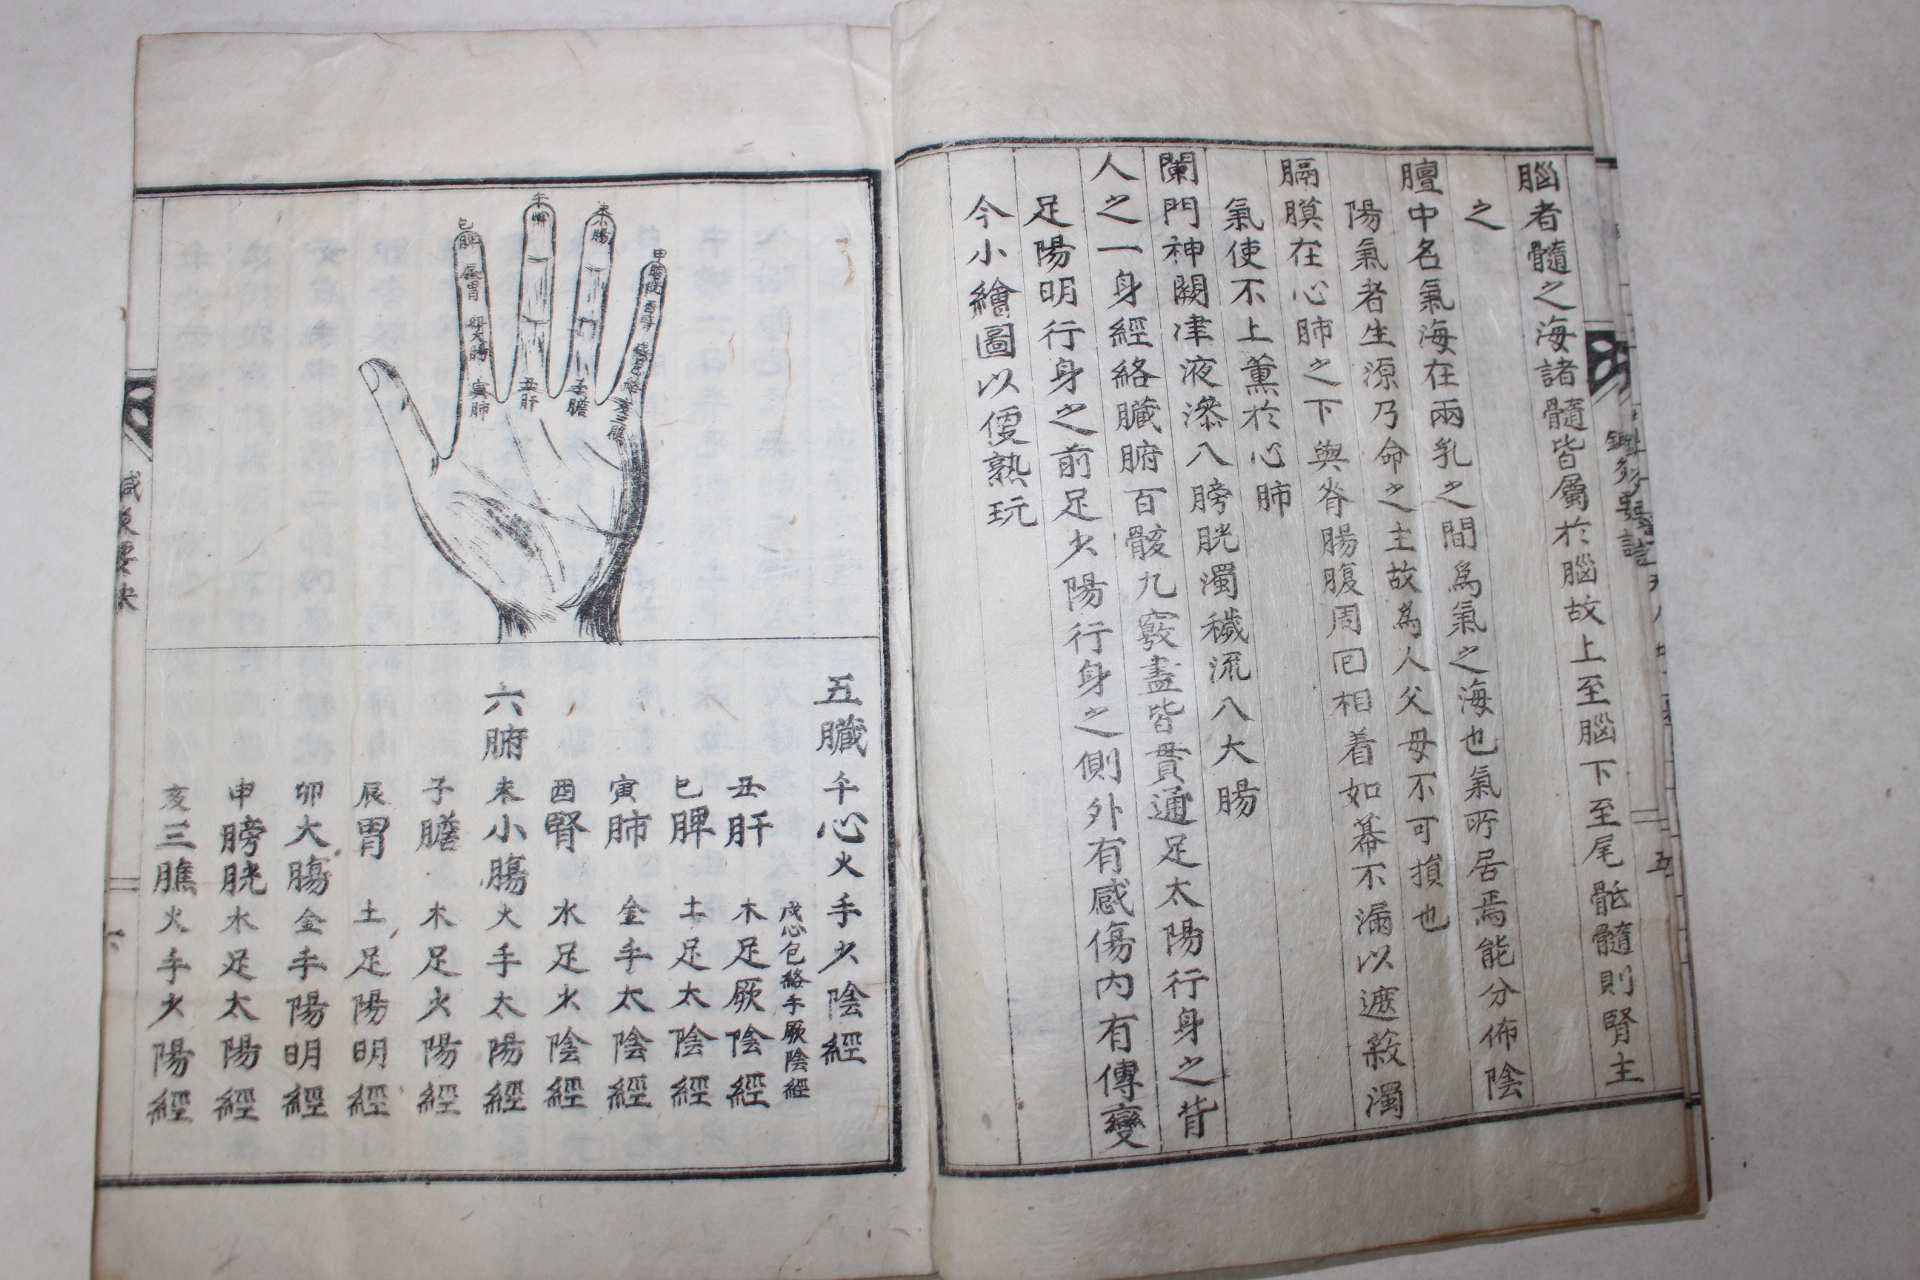 腦者髓之海諸髓皆屬於腦故上至腦下至尾骶髓則腎主
之
膻中名氣海在兩乳之間爲氣之海也氣所居焉能分佈陰
陽氣者生源乃命之主故爲人父母不可損也
膈膜在心肺之下與脊腸腹周回相着如幕不漏以遮蔽濁
氣使不上薰於心肺
闌門神闕津液滲入膀胱濁穢流入大腸
人之一身經絡臟腑百骸九竅盡皆貫通足太陽行身之背
足陽明行身之前足少陽行身之側外有感傷內有傳變
今小繪圖以便熟玩
五
巳脾
辰胃
卯大腸
寅肺
午
丑肝
未
子膽
申膀胱
酉腎
亥三焦
五臟午心火手少陰經
戌心包絡手厥陰經
丑肝木足厥陰經
巳脾土足太陰經
寅肺金手太陰經
酉腎水足少陰經
六腑未小膓火手太陽經
子膽木足少陽經
辰胃土足陽明經
卯大膓金手陽明經
申膀胱水足太陽經
亥三膲火手少陽經
六